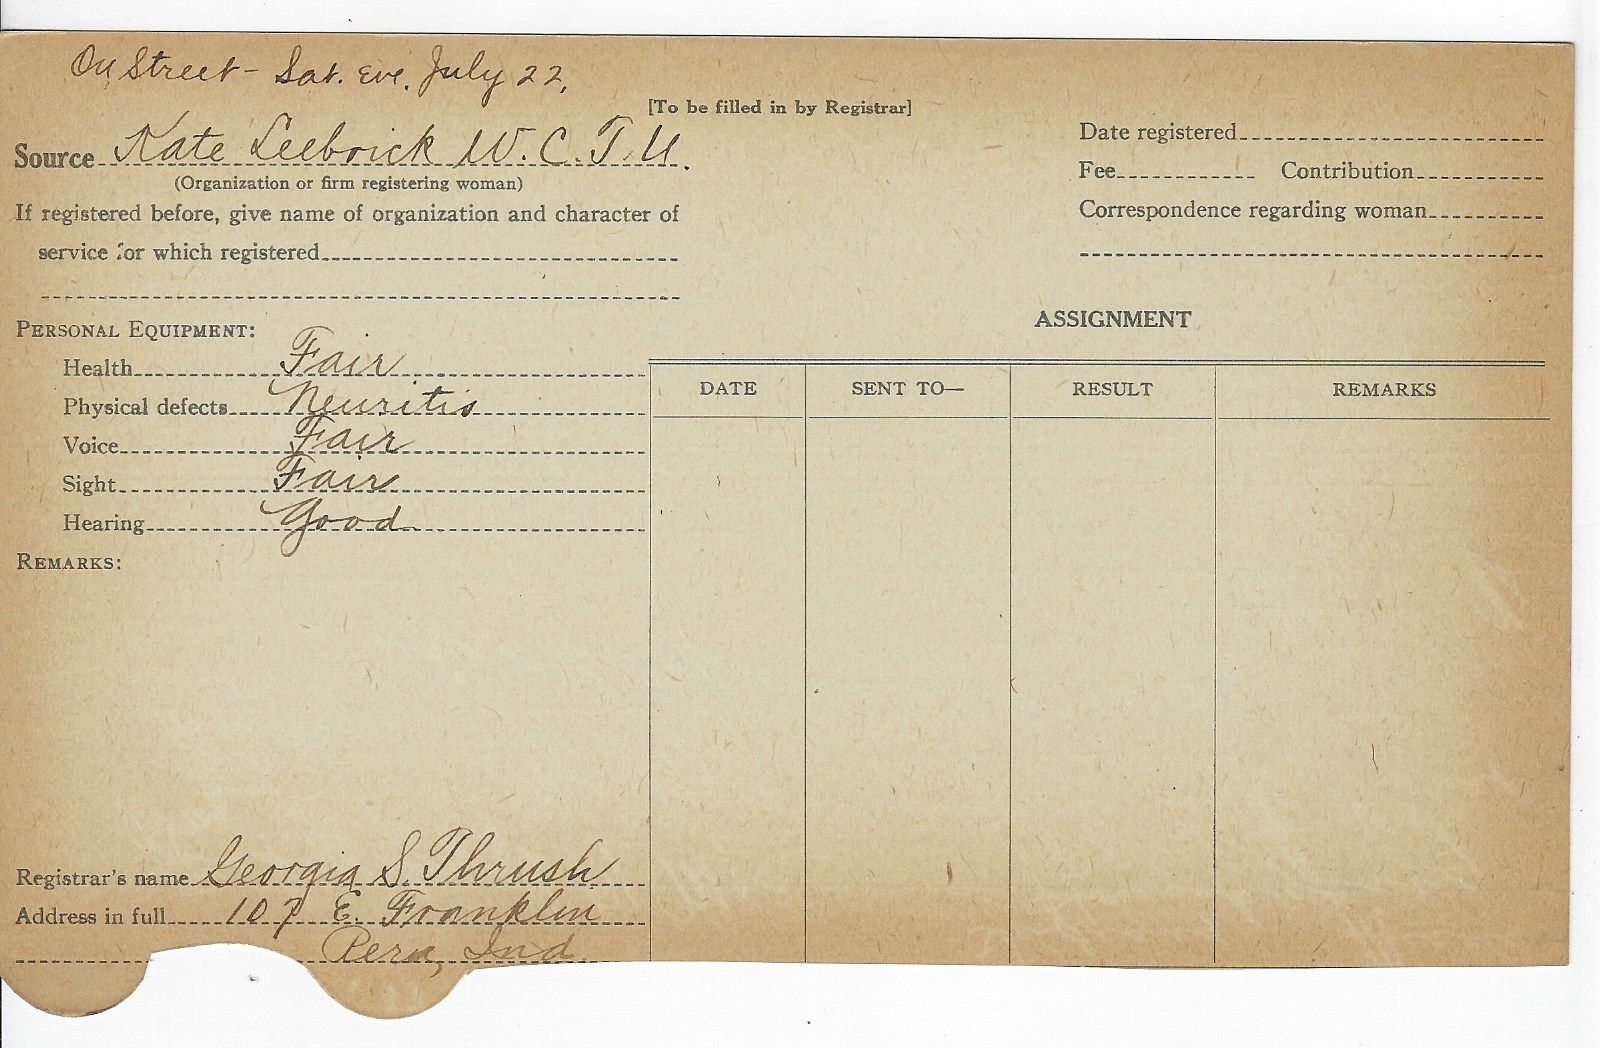 On Street - Sat. Eve. July 22,
[To be filled in by Registrar]
Source Kate Leebrick W. C. T. U.
(Organization or firm registering woman)
If registered before, give name of organization and character of
service for which registered
Date registered
Fee Contribution
Correspondence regarding woman
PERSONAL EQUIPMENT:
Health Fair
Physical defects Neuritis
Voice Fair
Sight Fair
Hearing Good
REMARKS:
ASSIGNMENT
DATE SENT TO— RESULT REMARKS
Registrar's name Georgia S. Thrush
Address in full 107 E. Franklin
Peru, Ind.